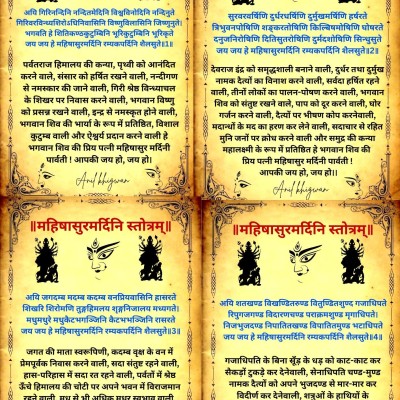 अयि गिरिनन्दिनि नन्दितमेदिनि विश्वविनोदिनि नन्दिनुते
गिरिवरविन्ध्यशिरोऽधिनिवासिनि विष्णुविलासिनि जिष्णुनुते।
भगवति हे शितिकण्ठकुटुम्बिनि भूरिकुटुम्बिनि भूरिकृते
जय जय हे महिषासुरमर्दिनि रम्यकपर्दिनि शैलसुते॥1॥
पर्वतराज हिमालय की कन्या, पृथ्वी को आनंदित
करने वाले, संसार को हर्षित रखने वाली, नन्दीगण
से नमस्कार की जाने वाली, गिरी श्रेष्ठ विन्ध्याचल
के शिखर पर निवास करने वाली, भगवान विष्णु
को प्रसन्न रखने वाली, इन्द्र से नमस्कृत होने वाली,
भगवान शिव की भार्या के रूप में प्रतिष्ठित, विशाल
कुटुम्ब वाली और ऐश्वर्य प्रदान करने वाली हे
भगवान शिव की प्रिय पत्नी महिषासुर मर्दिनी
पार्वती ! आपकी जय हो, जय हो।।
Anil bhigwan
सुरवरवर्षिणि दुर्धरधर्षिणि दुर्मुखमर्षिणि हर्षरते
त्रिभुवनपोषिणि शङ्करतोषिणि किल्बिषमोषिणि घोषरते
दनुजनिरोषिणि दितिसुतरोषिणि दुर्मदशोषिणि सिन्धुसुते
जय जय हे महिषासुरमर्दिनि रम्यकपर्दिनि शैलसुते॥2॥
देवराज इंद्र को समृद्धशाली बनाने वाली, दुर्धर तथा दुर्मुख
नामक दैत्यों का विनाश करने वाली, सर्वदा हर्षित रहने
वाली, तीनों लोकों का पालन-पोषण करने वाली, भगवान
शिव को संतुष्ट रखने वाले, पाप को दूर करने वाली, घोर
गर्जन करने वाली, दैत्यों पर भीषण कोप करनेवाली,
मदान्धों के मद का हरण कर लेने वाली, सदाचार से रहित
मुनि जनों पर क्रोध करने वाली और समुद्र की कन्या
महालक्ष्मी के रूप में प्रतिष्ठित हे भगवान शिव की
प्रिय पत्नी महिषासुर मर्दिनी !
आपकी जय हो, जय हो।।
Anil bhigwan
॥महिषासुरमर्दिनि स्तोत्रम्॥
अयि जगदम्ब मदम्ब कदम्ब वनप्रियवासिनि हासरते
शिखरि शिरोमणि तुङ्गहिमालय शृङ्गनिजालय मध्यगते।
मधुमधुरे मधुकैटभगञ्जिनि कैटभभञ्जिनि रासरते
जय जय हे महिषासुरमर्दिनि रम्यकपर्दिनि शैलसुते॥3॥
जगत की माता स्वरूपिणी, कदम्ब वृक्ष के वन में
प्रेमपूर्वक निवास करने वाली, सदा संतुष्ट रहने वाली,
हास-परिहास में सदा रत रहने वाली, पर्वतों में श्रेष्ठ
ऊँचे हिमालय की चोटी पर अपने भवन में विराजमान
रहने वाली, मधु से भी अधिक मधुर स्वभाव वाली
॥महिषासुरमर्दिनि स्तोत्रम्॥
अयि शतखण्ड विखण्डितरुण्ड वितुण्डितशुण्ड गजाधिपते
रिपुगजगण्ड विदारणचण्ड पराक्रमशुण्ड मृगाधिपते।
निजभुजदण्ड निपातितखण्ड विपातितमुण्ड भटाधिपते
जय जय हे महिषासुरमर्दिनि रम्यकपर्दिनि शैलसुते॥4॥
गजाधिपति के बिना सूँड़ के धड़ को काट-काट कर
सैकड़ों टुकड़े कर देनेवाली, सेनाधिपति चण्ड-मुण्ड
नामक दैत्यों को अपने भुजदण्ड से मार-मार कर
विदीर्ण कर देनेवाली, शत्रुओं के हाथियों के